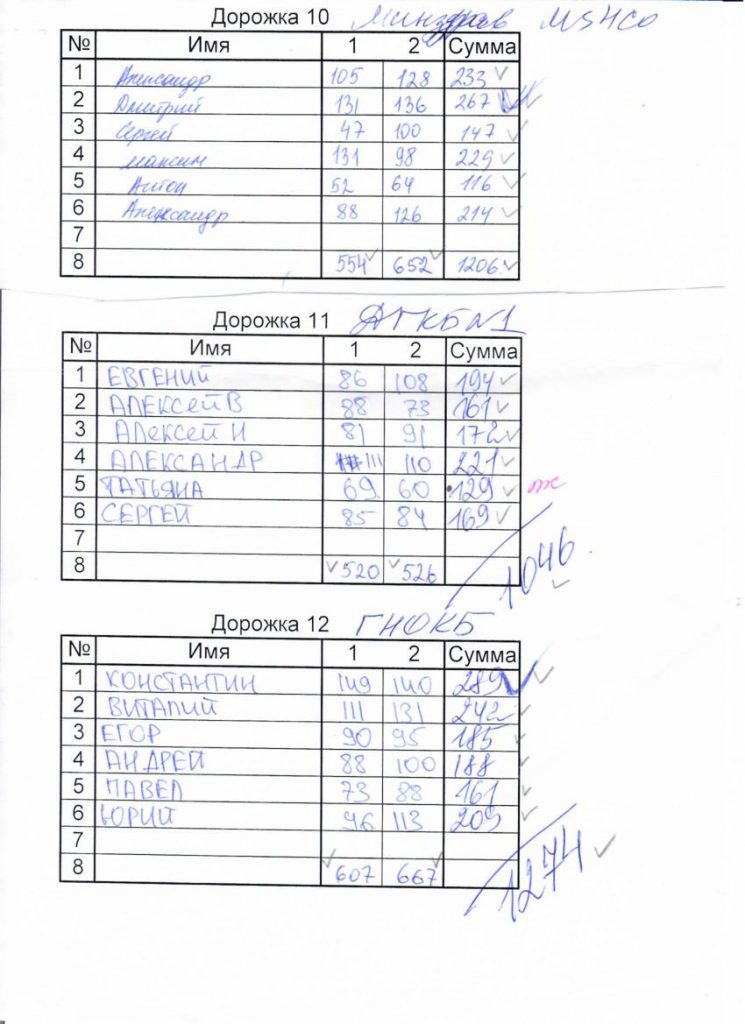 Дорожка 10 Минздрав МЗЧСО
№ Имя 1 2 Сумма
1 Александр 105 128 233
2 Дмитрий 131 136 267
3 Сергей 47 100 147
4 Максим 131 98 229
5 Антон 52 64 116
6 Александр 88 126 214
7
8 554 652 1206
Дорожка 11 ДГКБN1
№ Имя 1 2 Сумма
1 ЕВГЕНИЙ 86 108 194
2 АЛЕКСЕЙ В 88 73 161
3 АЛЕКСЕЙ Н 81 91 172
4 АЛЕКСАНДР 111 110 221
5 ТАТЬЯНА 69 60 129 ж
6 СЕРГЕЙ 85 84 169
7
8 520 526
1046
Дорожка 12 ГНОКБ
№ Имя 1 2 Сумма
1 КОНСТАНТИН 149 140 289
2 ВИТАЛИЙ 111 131 242
3 ЕГОР 90 95 185
4 АНДРЕЙ 88 100 188
5 ПАВЕЛ 73 88 161
6 ЮРИЙ 96 113 209
7
8 607 667
1274